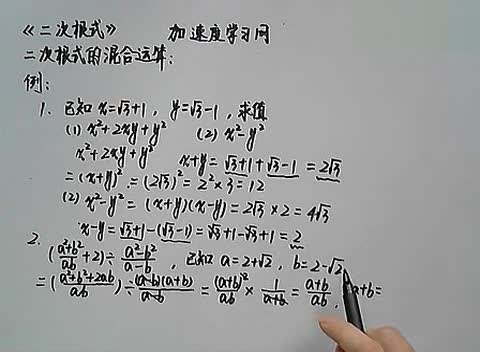 《二次根式》 加速度学习网
二次根式的混合运算:
例:
1. 已知 x=√3+1, y=√3-1, 求值
(1) x²+2xy+y² (2) x²-y²
x²+2xy+y² x+y=√3+1+√3-1=2√3
=(x+y)²=(2√3)²=2²×3=12
(2) x²-y²=(x+y)(x-y)=2√3×2=4√3
x-y=√3+1-(√3-1)=√3+1-√3+1=2
2. ((a²+b²)/ab+2)÷(a²-b²)/(a-b), 已知 a=2+√2, b=2-√2
=((a²+b²+2ab)/ab)÷((a-b)(a+b))/(a-b)=(a+b)²/ab×1/(a+b)=(a+b)/ab. a+b=